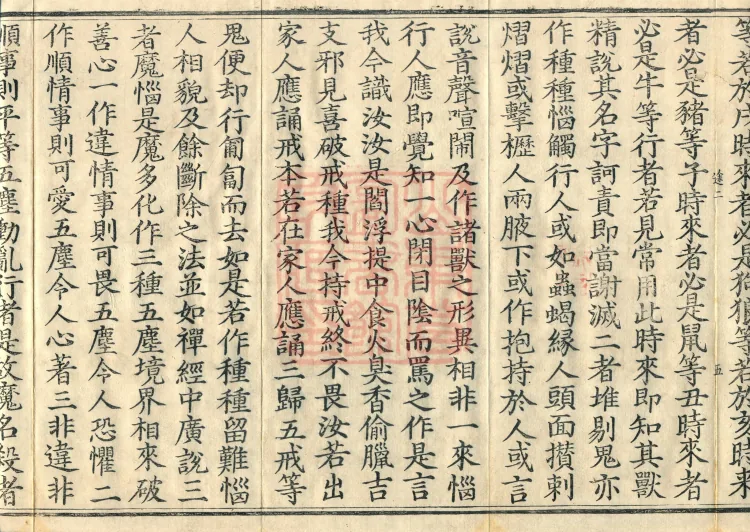 等若於戌時來者必是狗狼等若於亥時來
五
者必是豬等子時來者必是鼠等丑時來者
必是牛等行者若見常用此時來即知其獸
精說其名字訶責即當謝滅二者堆剔鬼亦
作種種惱觸行人或如蟲蝎緣人頭面攢刺
熠熠或擊櫪人兩腋下或作抱持於人或言
說音聲喧鬧及作諸獸之形異相非一來惱
行人應即覺知一心閉目陰而罵之作是言
我今識汝汝是閻浮提中食火臭香偷臘吉
支邪見喜破戒種我今持戒終不畏汝若出
家人應誦戒本若在家人應誦三歸五戒等
鬼便却行匍匐而去如是若作種種留難惱
人相貌及餘斷除之法並如禪經中廣說三
者魔惱是魔多化作三種五塵境界相來破
善心一作違情事則可畏五塵令人恐懼二
作順情事則可愛五塵令人心著三非違非
順事則平等五塵動亂行者是故魔名殺者